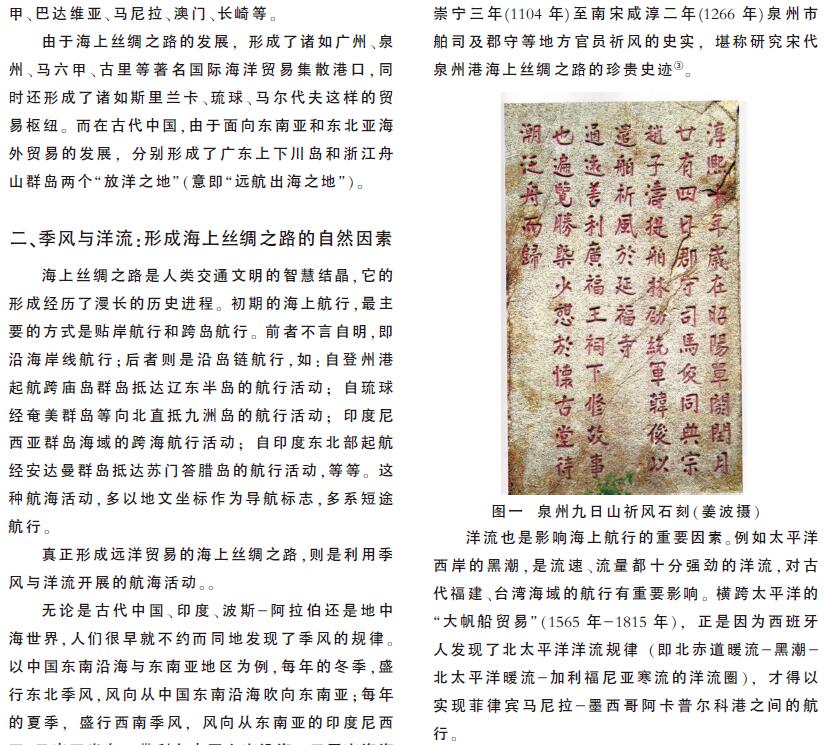 甲、巴达维亚、马尼拉、澳门、长崎等。
由于海上丝绸之路的发展，形成了诸如广州、泉
州、马六甲、古里等著名国际海洋贸易集散港口，同
时还形成了诸如斯里兰卡、琉球、马尔代夫这样的贸
易枢纽。而在古代中国，由于面向东南亚和东北亚海
外贸易的发展，分别形成了广东上下川岛和浙江舟
山群岛两个“放洋之地”（意即“远航出海之地”）。
二、季风与洋流：形成海上丝绸之路的自然因素
海上丝绸之路是人类交通文明的智慧结晶，它的
形成经历了漫长的历史进程。初期的海上航行，最主
要的方式是贴岸航行和跨岛航行。前者不言自明，即
沿海岸线航行；后者则是沿岛链航行，如：自登州港
起航跨庙岛群岛抵达辽东半岛的航行活动；自琉球
经奄美群岛等向北直抵九洲岛的航行活动；印度尼
西亚群岛海域的跨海航行活动；自印度东北部起航
经安达曼群岛抵达苏门答腊岛的航行活动，等等。这
种航海活动，多以地文坐标作为导航标志，多系短途
航行。
真正形成远洋贸易的海上丝绸之路，则是利用季
风与洋流开展的航海活动。。
无论是古代中国、印度、波斯—阿拉伯还是地中
海世界，人们很早就不约而同地发现了季风的规律。
以中国东南沿海与东南亚地区为例，每年的冬季，盛
行东北季风，风向从中国东南沿海吹向东南亚；每年
的夏季，盛行西南季风，风向从东南亚的印度尼西
崇宁三年(1104 年)至南宋咸淳二年(1266 年)泉州市
舶司及郡守等地方官员祈风的史实，堪称研究宋代
泉州港海上丝绸之路的珍贵史迹③。
淳熙十年歲在昭陽單閼閏月
廿有四日郡守司馬伋同典宗
趙子濤提舶林劭統軍韓俊以
遣舶祈風於延福寺
通遠善利廣福王祠下修故事
也遍覽勝槩少憩於懷古堂待
潮泛舟而歸
图一 泉州九日山祈风石刻(姜波摄)
洋流也是影响海上航行的重要因素。例如太平洋
西岸的黑潮，是流速、流量都十分强劲的洋流，对古
代福建、台湾海域的航行有重要影响。横跨太平洋的
“大帆船贸易”(1565 年—1815 年)，正是因为西班牙
人发现了北太平洋洋流规律（即北赤道暖流—黑潮—
北太平洋暖流—加利福尼亚寒流的洋流圈），才得以
实现菲律宾马尼拉—墨西哥阿卡普尔科港之间的航
行。